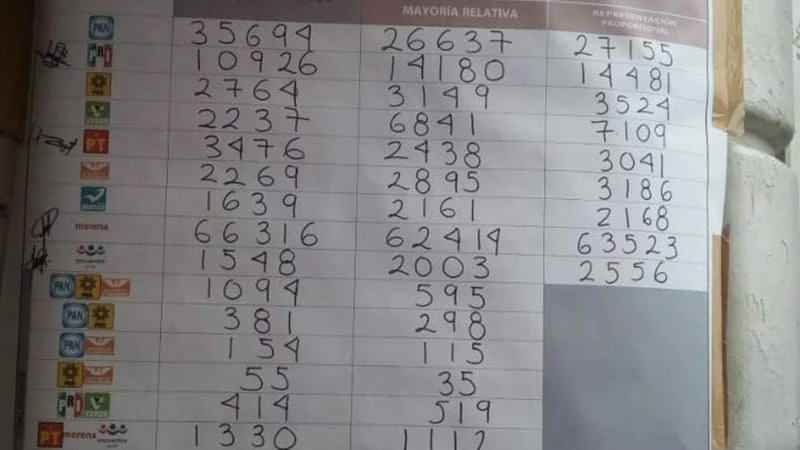 MAYORÍA RELATIVA REPRESENTACIÓN PROPORCIONAL
PAN 35694 26637 27155
PRI 10926 14180 14481
PRD 2764 3149 3524
VERDE 2237 6841 7109
PT 3476 2438 3041
2269 2895 3186
1639 2161 2168
morena 66316 62414 63523
encuentro 1548 2003 2556
PAN PRD 1094 595
PAN PRD 381 298
PAN 154 115
PRD 55 35
PRI VERDE 414 519
PT morena encuentro 1330 1112